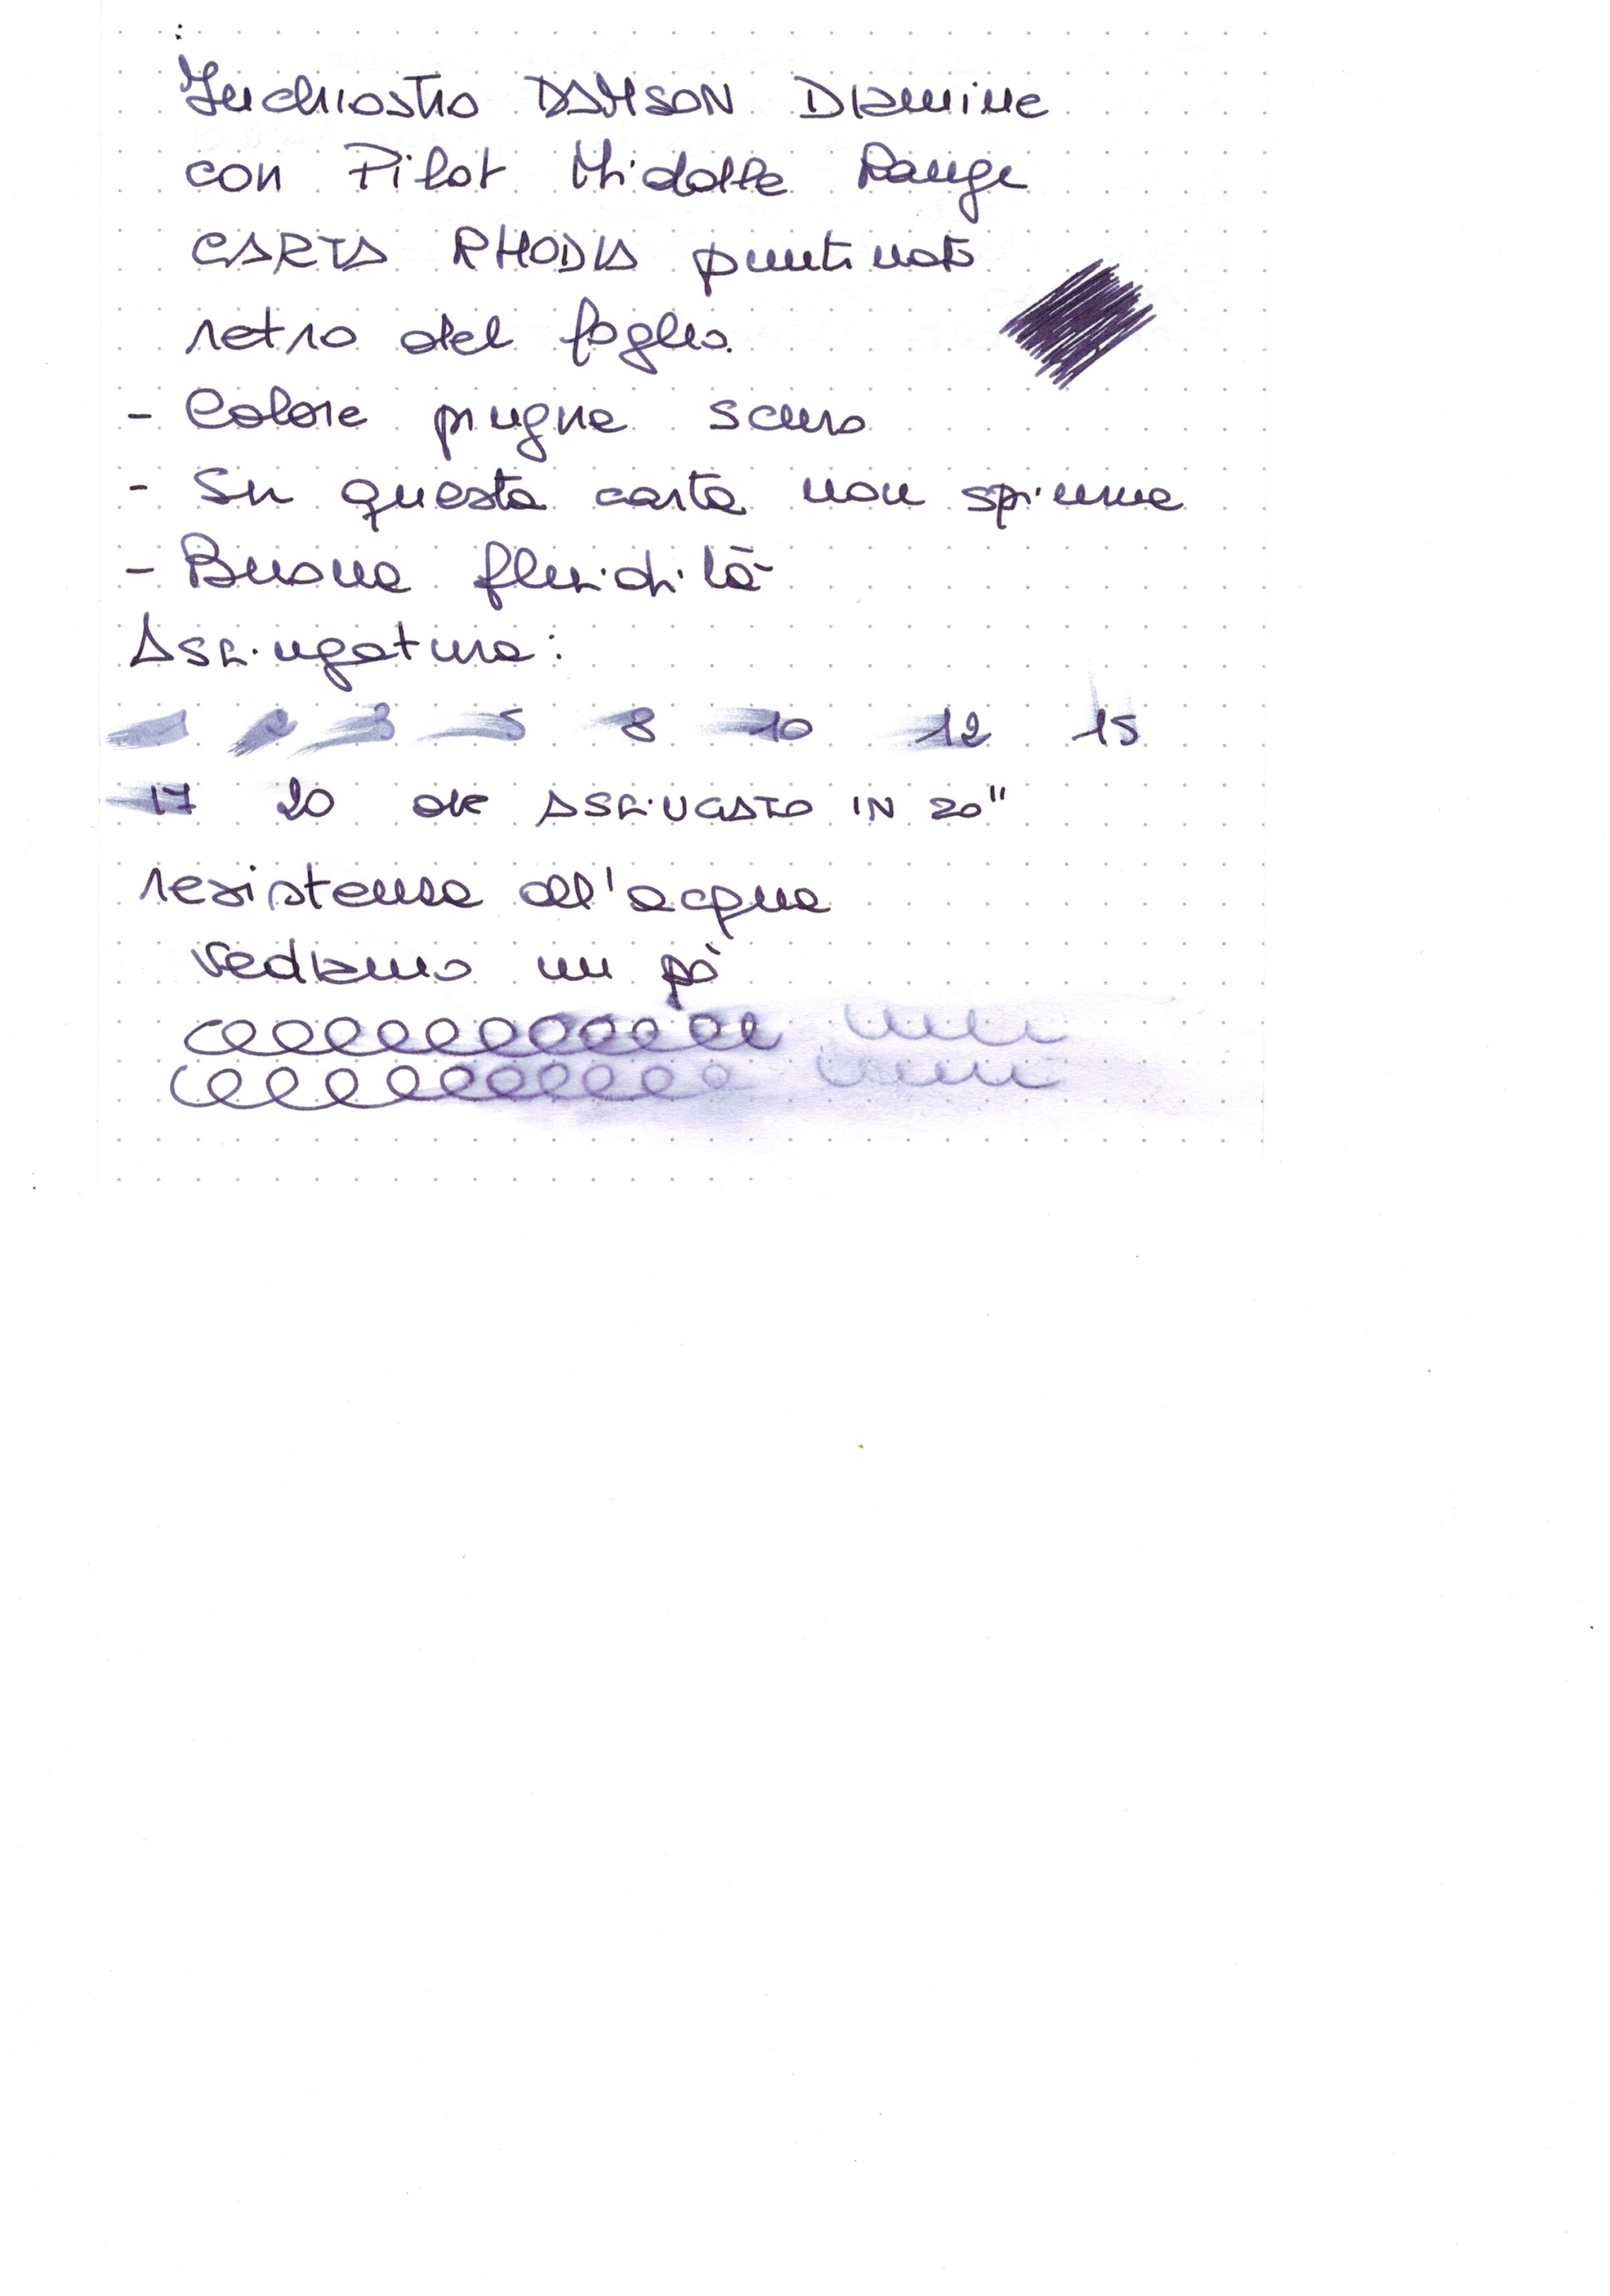 Inchiostro DAMSON Diamine
con Pilot Midolle Range
CARTA RHODIA puntinata
retro del foglio.
- Colore prugna scuro
- Su questa carta non spiuma
- Buona fluidità
Asciugatura:
2 3 5 8 10 12 15
17 20 ok ASCIUGATO IN 20"
resistenza all'acqua
Vediamo un pò